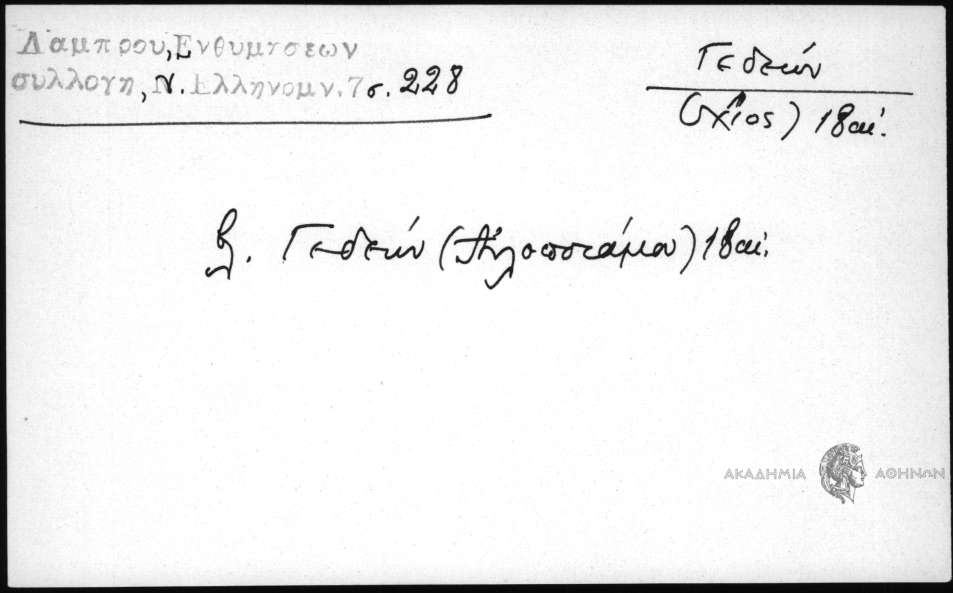 Λαμπρου, Ενθυμησεων
συλλογη, Ν. Ελληνομν. 7 σ. 228
Γεδεών
(Χῖος) 18 αι.
βλ. Γεδεών (Αὐλοποτάμου) 18 αι.
ΑΚΑΔΗΜΙΑ ΑΘΗΝΩΝ